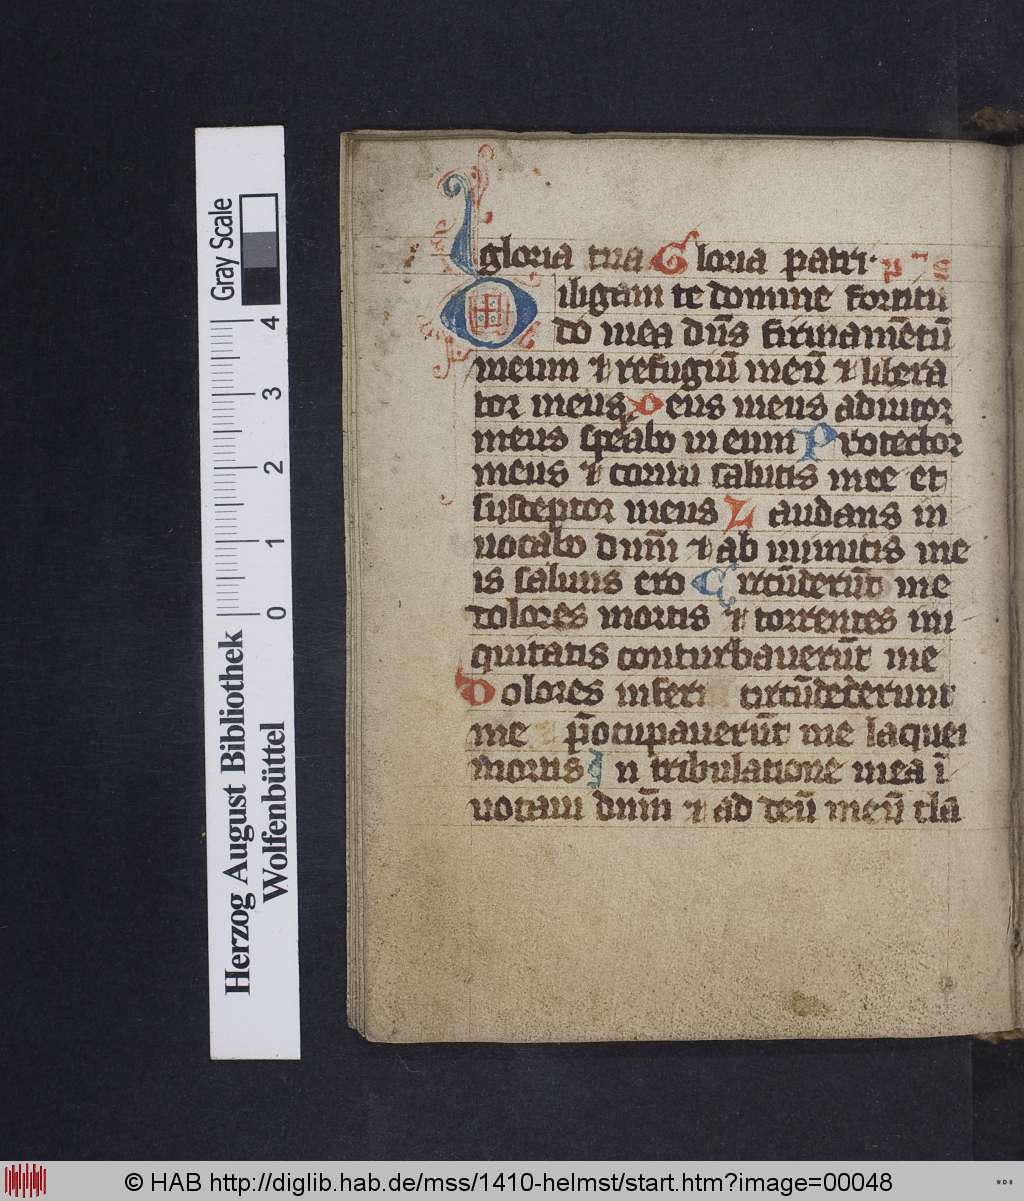 gloria tua Gloria patri · ps
Diligam te domine fortitu
do mea dn̄s firmamētū
meum ⁊ refugiū meū ⁊ libera
tor meus Deus meus adiutor
meus sperabo in eum Protector
meus ⁊ cornu salutis mee et
susceptor meus Laudans in
uocabo dnm̄ ⁊ ab inimicis me
is saluus ero Circūderūt me
dolores mortis ⁊ torrentes ini
quitatis conturbauerūt me
Dolores inferi circūdederunt
me p̄ocupauerūt me laquei
mortis In tribulatione mea ī
uocaui dnm̄ ⁊ ad deū meū cla
Gray Scale
4
3
2
1
0
Herzog August Bibliothek
Wolfenbüttel
© HAB http://diglib.hab.de/mss/1410-helmst/start.htm?image=00048